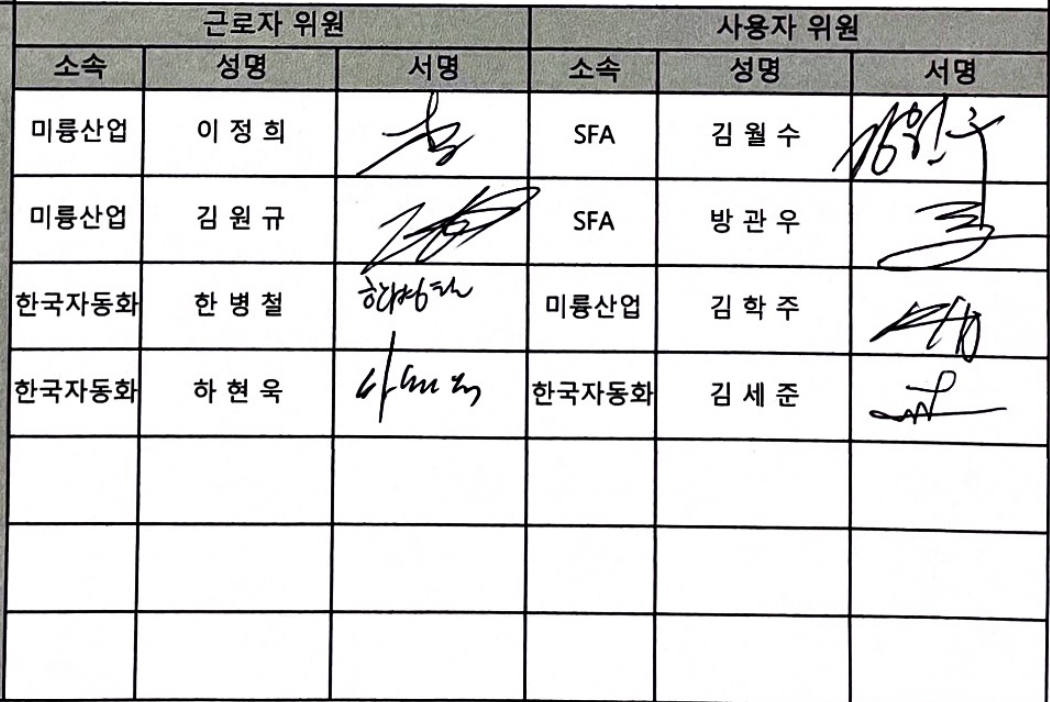 근로자 위원 사용자 위원
소속 성명 서명 소속 성명 서명
미륭산업 이 정 희 SFA 김 월 수
미륭산업 김 원 규 SFA 방 관 우
한국자동화 한 병 철 미륭산업 김 학 주
한국자동화 하 현 욱 한국자동화 김 세 준